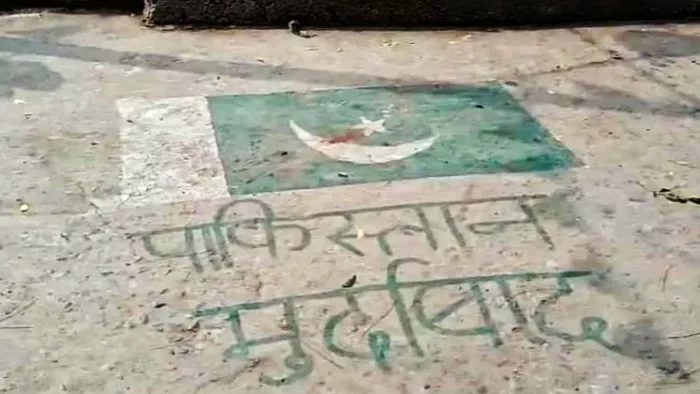 पाकिस्तान
मुर्दाबाद